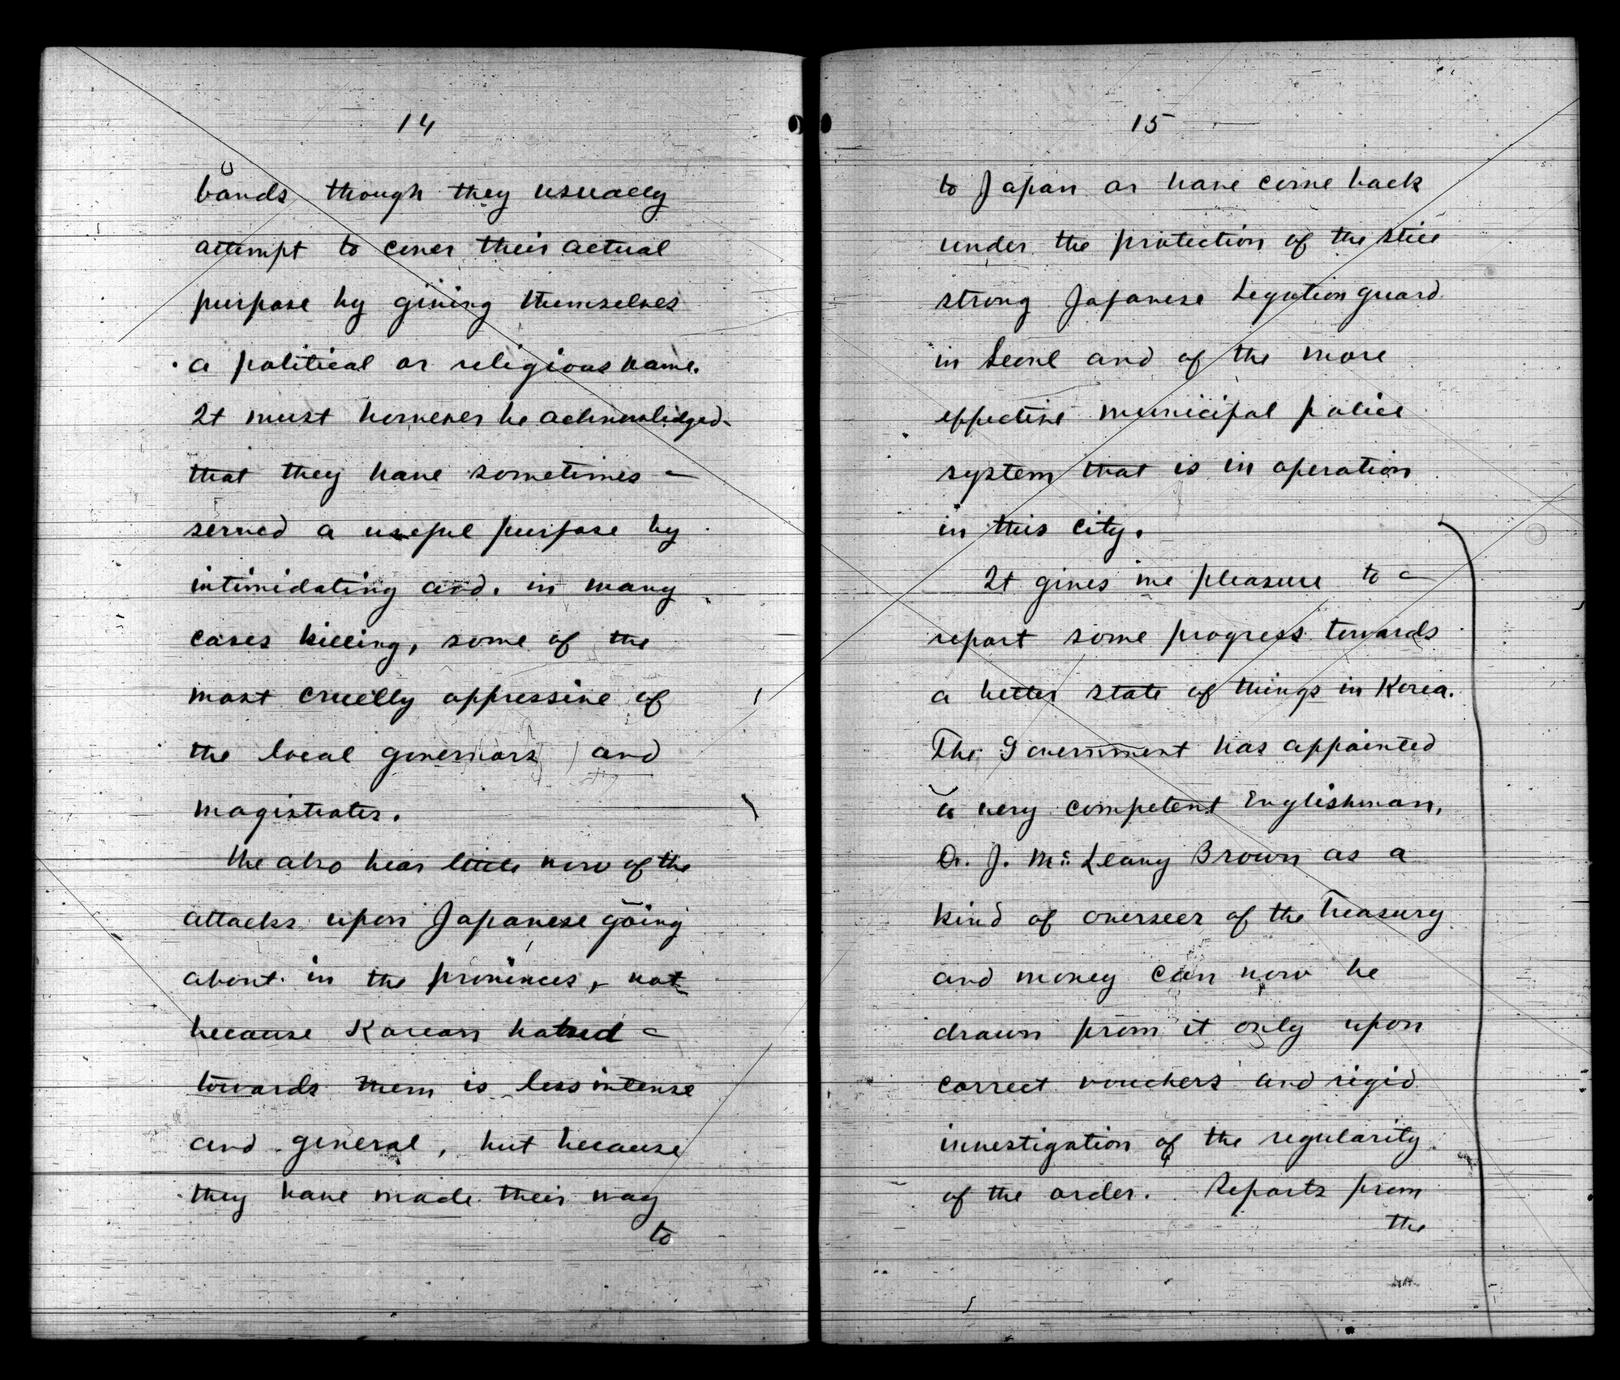 14
bands though they usually
attempt to cover their actual
purpose by giving themselves
a political or religious name.
It must however be acknowledged
that they have sometimes
served a useful purpose by
intimidating and, in many
cases killing, some of the
most cruelly oppressive of
the local governors and
magistrates.
We also hear little now of the
attacks upon Japanese going
about in the provinces, not
because Korean hatred
towards them is less intense
and general, but because
they have made their way
to
15
to Japan or have come back
under the protection of the still
strong Japanese Legation guard
in Seoul and of the more
effective municipal police
system that is in operation
in this city.
It gives me pleasure to
report some progress towards
a better state of things in Korea.
The Government has appointed
a very competent Englishman,
J. Mc Leavy Brown as a
kind of overseer of the Treasury
and money can now be
drawn from it only upon
correct vouchers and rigid
investigation of the regularity
of the order. Reports from
the